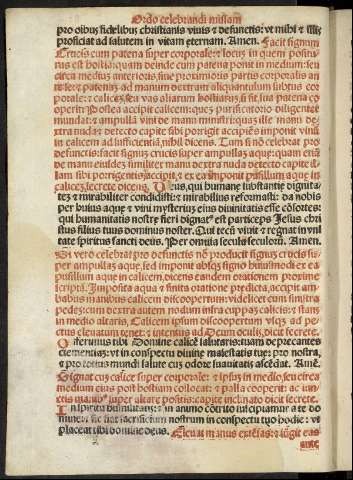 Ordo celebrandi missam
pro oībus fidelibus christianis viuis ⁊ defunctis: vt mihi ⁊ illis
proficiat ad salutem in vitam eternam. Amen. Facit signum
Crucis cum patena super corporale: ⁊ locus in quem positu-
rus est hostiā: quam deinde cum patena ponit in medium: seu
circa medium anterioris, siue proximioris partis corporalis an
te se: ⁊ patenā ad manum dextram aliquantulum subtus cor
porale: ⁊ calicē, seu vas aliarum hostiarū, si fit, sua patena co
operit. Postea accipit calicem: eumq; purificatorio diligenter
mundat: ⁊ ampullā vini de manu ministri: quas ille manu de-
xtra nuda ⁊ detecto capite sibi porrigit accipiēs imponit vinū
in calicem ad sufficientiā, nihil dicens. Tum si nō celebrat pro
defunctis: facit signum crucis super ampullas aque: quam eius
de manu eiusdē similiter manu dextra nuda detecto capite il-
lam sibi porrigentis accipit, ⁊ ex ea imponit pusillum aque in
calicē, secrete dicens. Deus, qui humane substantie dignita-
tem ⁊ mirabiliter condidisti: ⁊ mirabilius reformasti: da nobis
per huius aque ⁊ vini mysterium eius diuinitatis esse cōsortes:
qui humanitatis nostre fieri dignatꝰ est particeps Jesus chri
stus filius tuus dominus noster. Qui tecū viuit ⁊ regnat in vni
tate spiritus sancti deus. Per omnia secula seculorū. Amen.
Si vero celebrat pro defunctis nō producit signū crucis su-
per ampullas aque, sed imponit absq; signo huiusmodi ex ea
pusillum aque in calicem, dicens eandem orationem proxime
scriptā. Imposita aqua ⁊ finita oratione predicta, accipit am-
babus manibus calicem discoopertum: videlicet cum sinistra
pedem: cum dextra autem nodum infra cuppam calicis: ⁊ stans
in medio altaris, Calicem ipsum discoopertum vsq; ad pe-
ctus eleuatum tenet: ⁊ intentus ad Deum oculis, dicit secrete.
Offerimus tibi Domine calicē salutaris: tuam deprecantes
clementiam: vt in conspectu diuine maiestatis tue: pro nostra,
⁊ pro totius mundi salute cum odore suauitatis ascēdat. Amē.
Signat cum calice super corporale: ⁊ ipsum in medio, seu circa
medium eius post hostiam collocat: ⁊ palla cooperit: ac iun-
ctis manibꝰ super altare positis: capite inclinato dicit secrete.
In spiritu humilitatis: ⁊ in animo cōtrito suscipiamur a te do
mine: ⁊ sic fiat sacrificium nostrum in conspectu tuo hodie: vt
placeat tibi domine deus. Eleuat manus extēsas: ⁊ iūgit eas